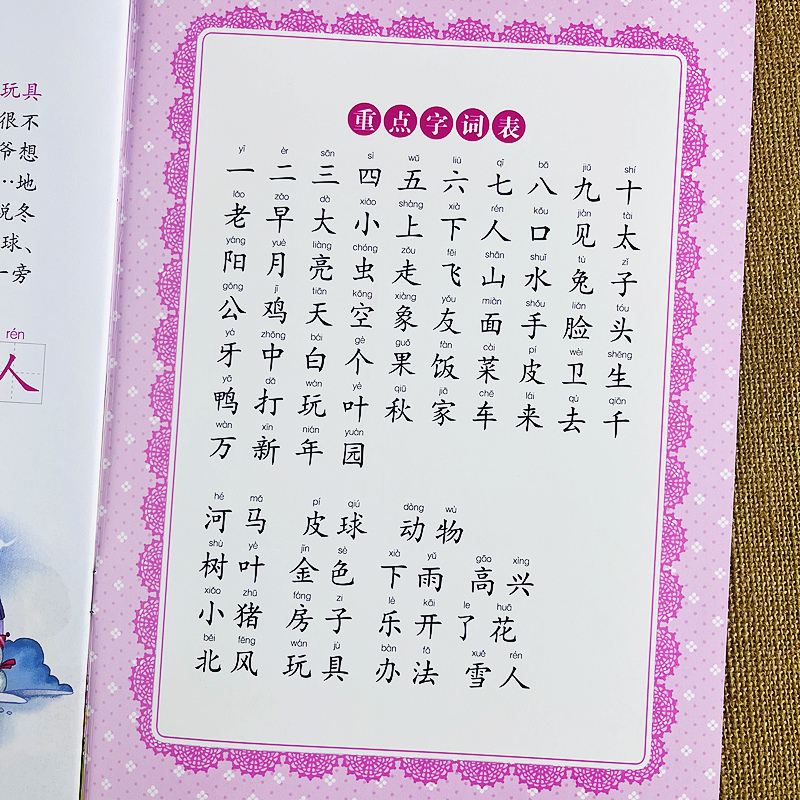 玩具
很不
爷想
…地
说冬
球、
一旁
rén
人
重点字词表
yī èr sān sì wǔ liù qī bā jiǔ shí
一 二 三 四 五 六 七 八 九 十
lǎo zǎo dà xiǎo shàng xià rén kǒu jiàn tài
老 早 大 小 上 下 人 口 见 太
yáng yuè liàng chóng zǒu fēi shān shuǐ tù zǐ
阳 月 亮 虫 走 飞 山 水 兔 子
gōng jī tiān kōng xiàng yǒu miàn shǒu liǎn tóu
公 鸡 天 空 象 友 面 手 脸 头
yá zhōng bái gè guǒ fàn cài pí wèi shēng
牙 中 白 个 果 饭 菜 皮 卫 生
yā dǎ wán yè qiū jiā chē lái qù qiān
鸭 打 玩 叶 秋 家 车 来 去 千
wàn xīn nián yuán
万 新 年 园
hé mǎ pí qiú dòng wù
河马 皮球 动物
shù yè jīn sè xià yǔ gāo xìng
树叶 金色 下雨 高兴
xiǎo zhū fáng zi lè kāi le huā
小猪 房子 乐开了花
běi fēng wán jù bàn fǎ xuě rén
北风 玩具 办法 雪人